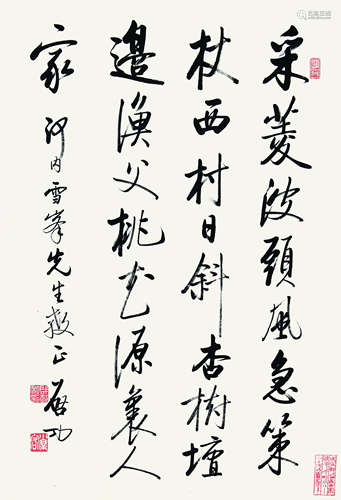 采菱波頭風急策
杖西村日斜杏樹壇
邊漁父桃花源裏人
家 河内雪峯先生教正 啓功